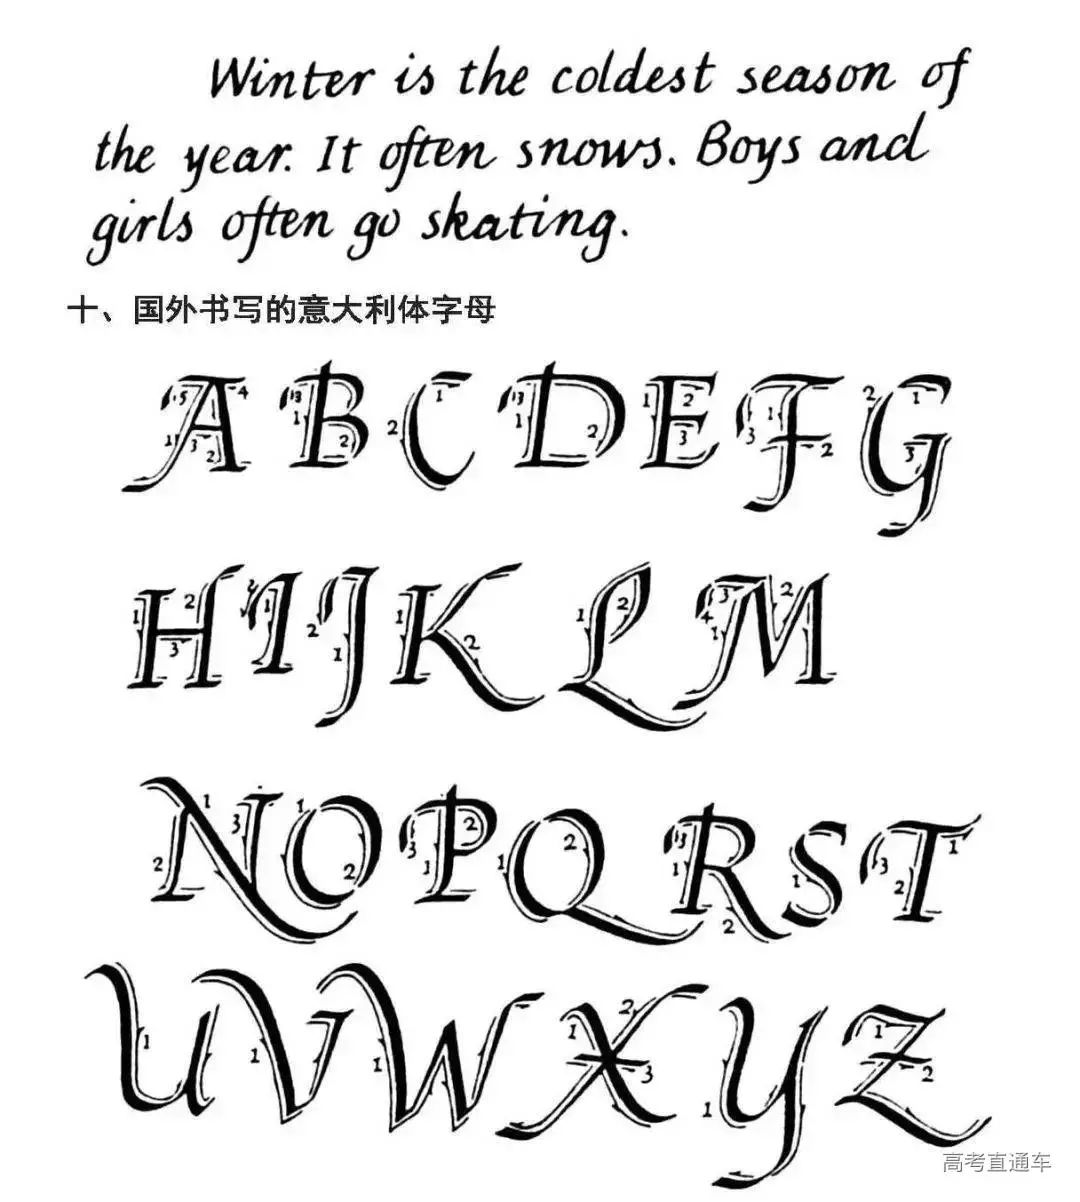 Winter is the coldest season of
the year. It often snows. Boys and
girls often go skating.
十、国外书写的意大利体字母
A B C D E F G
H I J K L M
N O P Q R S T
U V W X Y Z
高考直通车